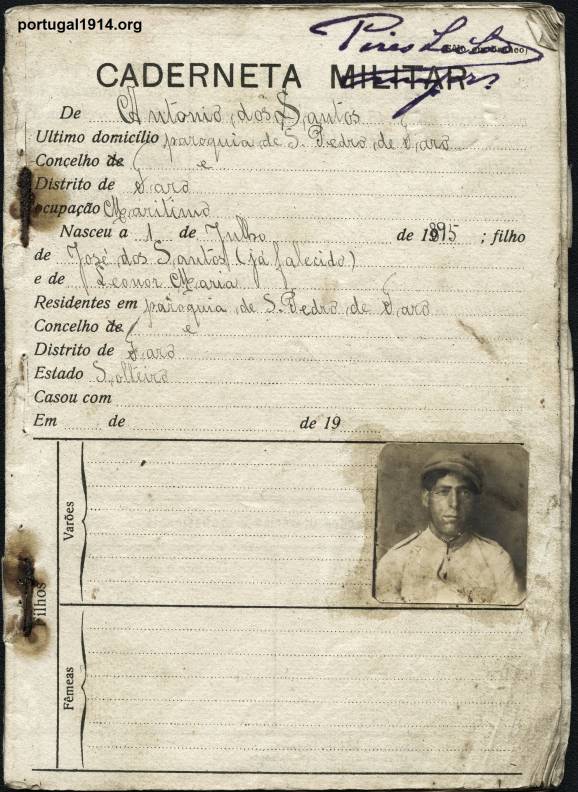 portugal1914.org
CADERNETA MILITAR
De Antonio dos Santos
Ultimo domicílio paroquia de S. Pedro de Faro
Concelho de e
Distrito de Faro
ocupação Maritimo
Nasceu a 1 de Julho de 1895; filho
de José dos Santos (já falecido)
e de Leonor Maria
Residentes em paroquia de S. Pedro de Faro
Concelho de e
Distrito de Faro
Estado Solteiro
Casou com
Em de de 19
Filhos
Varões
Fêmeas